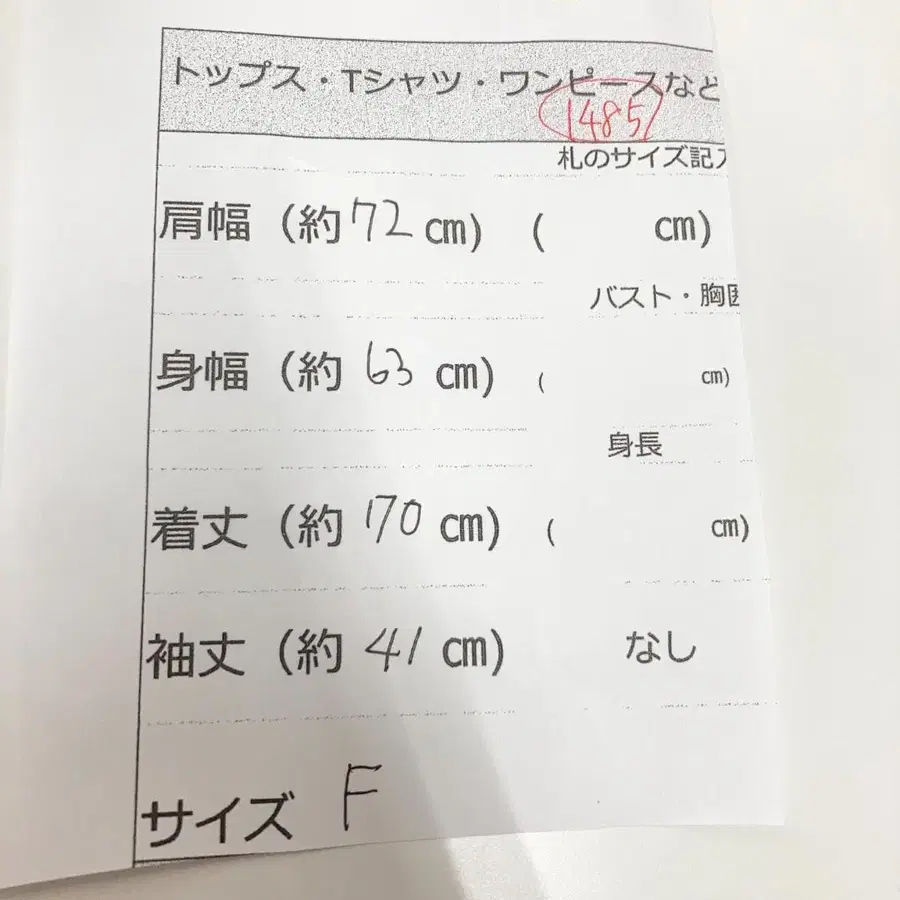 トップス・Tシャツ・ワンピースなど
1485
札のサイズ記入
肩幅 (約 72 cm) ( cm)
バスト・胸囲
身幅 (約 63 cm) ( cm)
身長
着丈 (約 170 cm) ( cm)
袖丈 (約 41 cm) なし
サイズ F